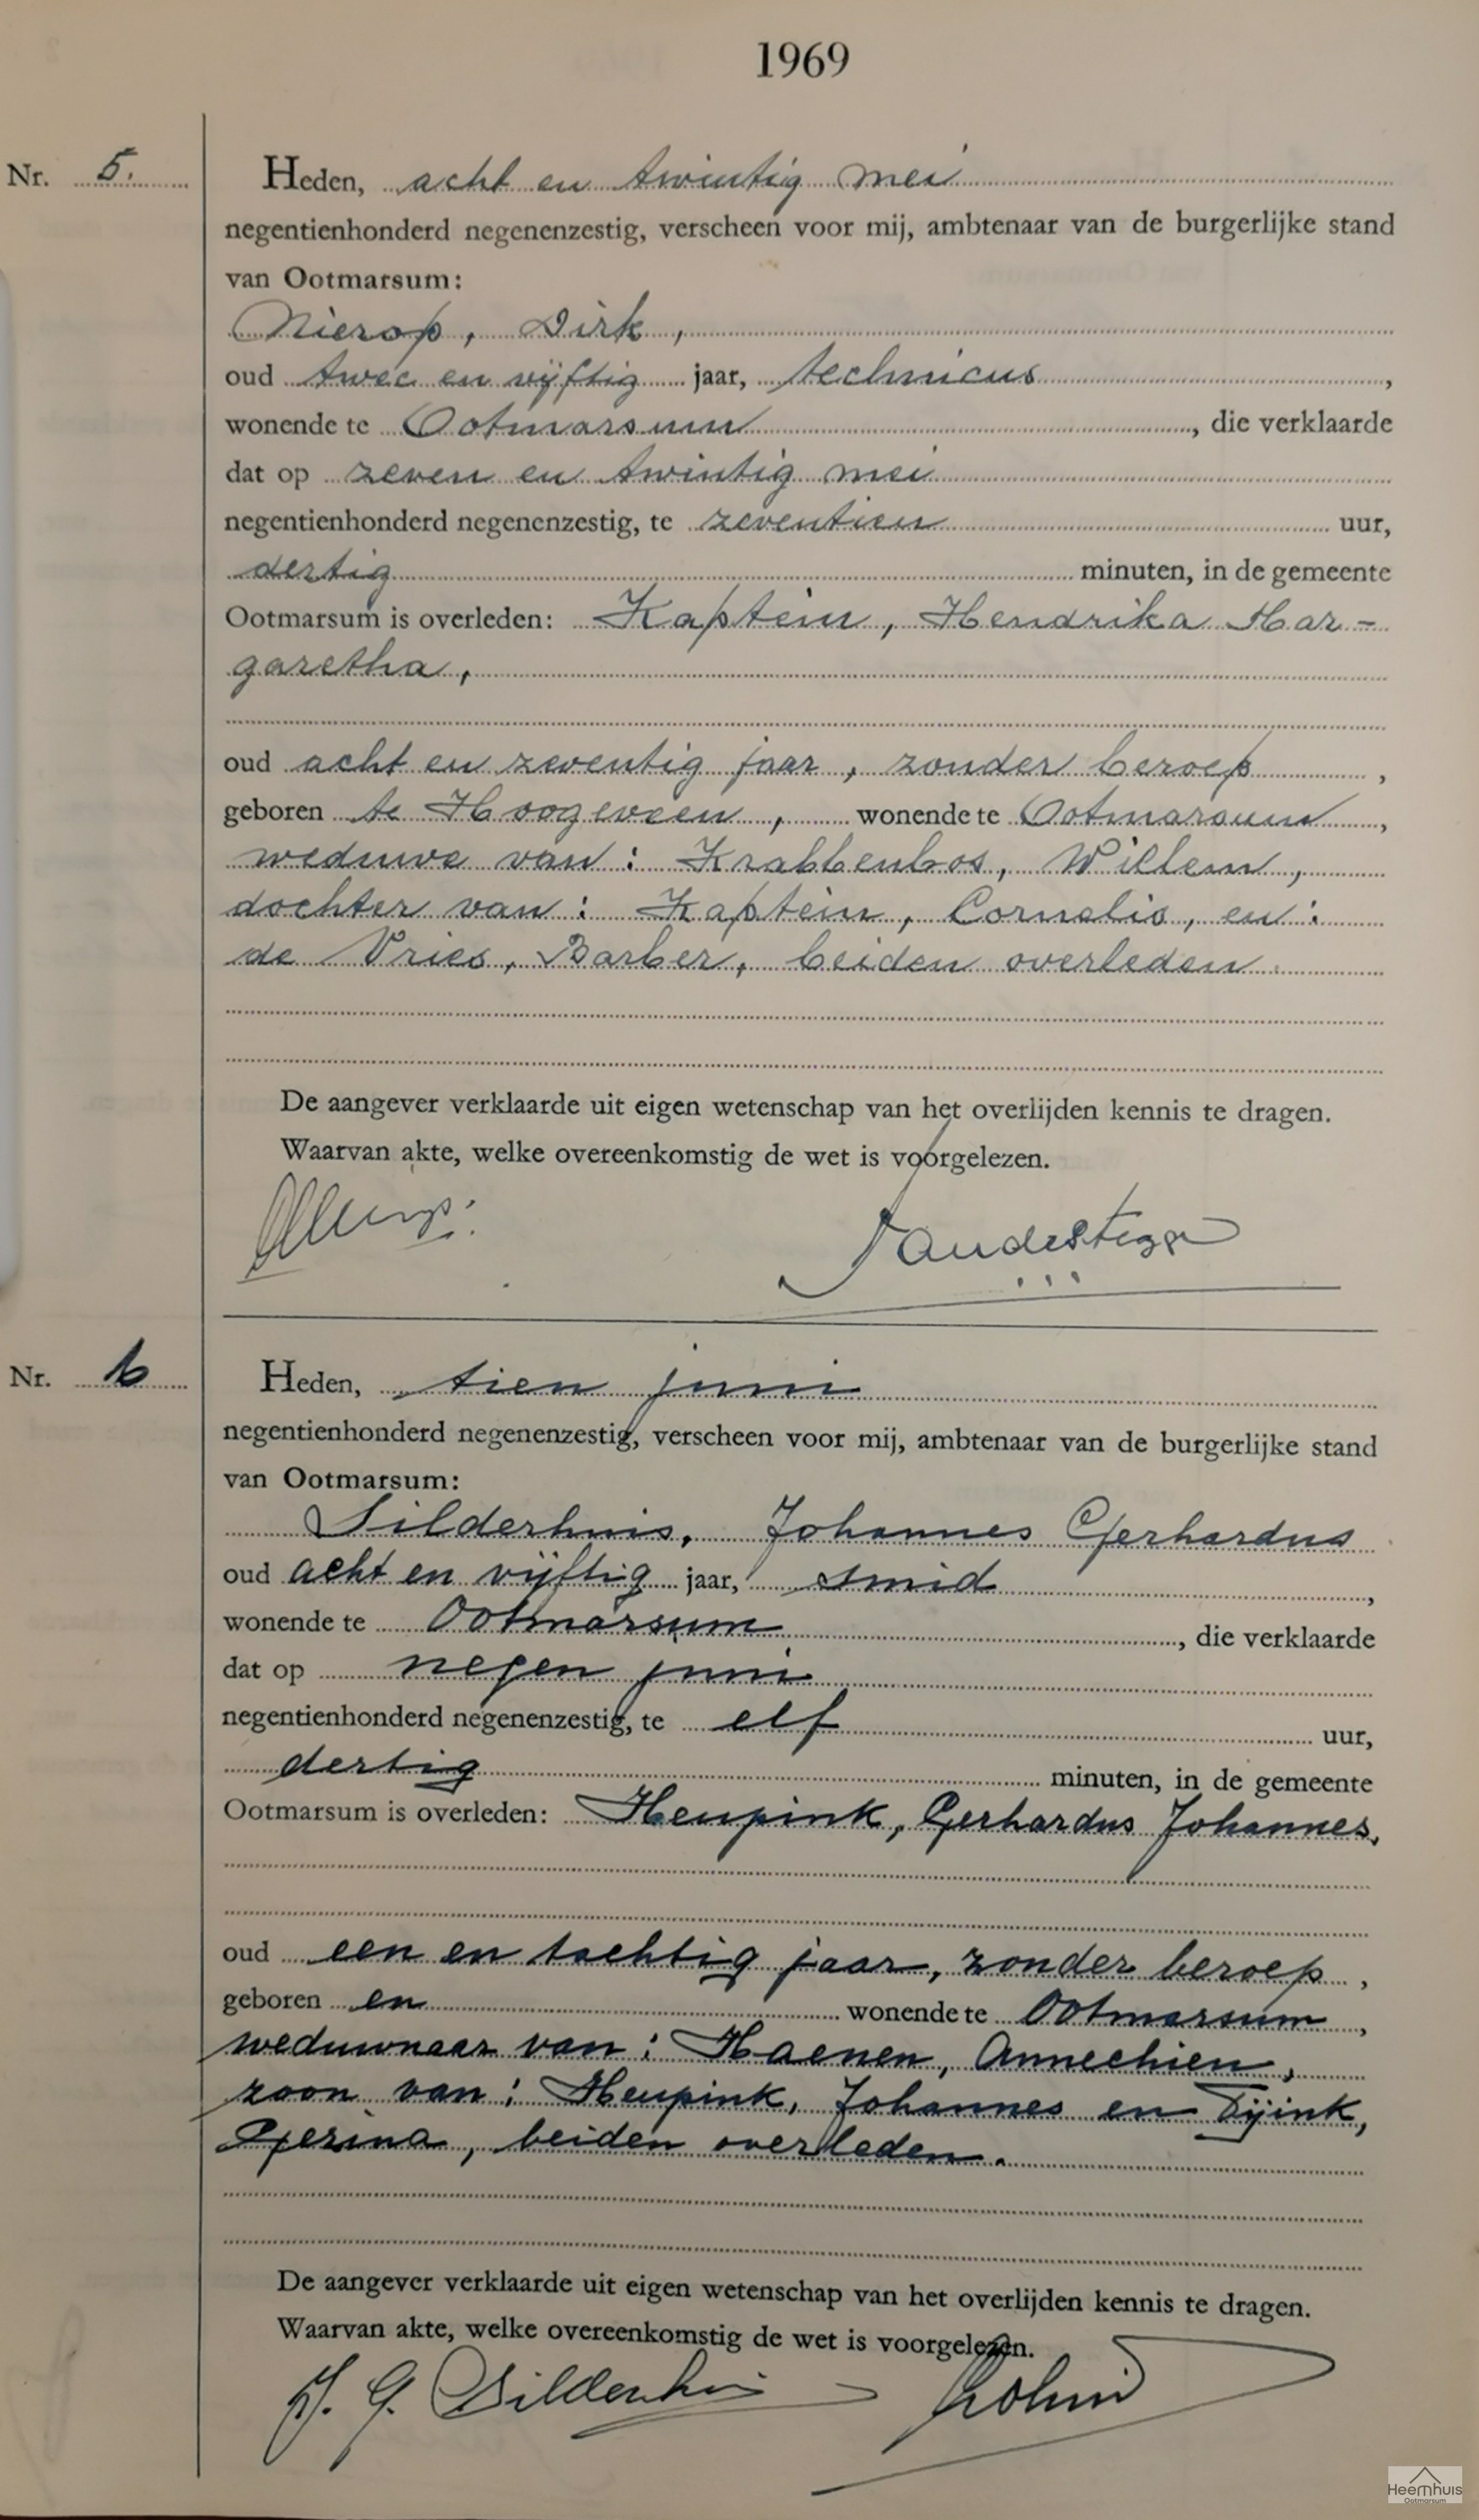 1969
Nr. 5.
Heden, acht en twintig mei
negentienhonderd negenenzestig, verscheen voor mij, ambtenaar van de burgerlijke stand
van Ootmarsum:
Nierop, Dirk,
oud twee en vijftig jaar, technicus,
wonende te Ootmarsum, die verklaarde
dat op zeven en twintig mei
negentienhonderd negenenzestig, te zeventien uur,
dertig minuten, in de gemeente
Ootmarsum is overleden: Kaptein, Hendrika Mar-
garetha,
oud acht en zeventig jaar, zonder beroep,
geboren te Hoogeveen, wonende te Ootmarsum,
weduwe van: Krabbenbos, Willem,
dochter van: Kaptein, Cornelis, en:
de Vries, Barber, beiden overleden.
De aangever verklaarde uit eigen wetenschap van het overlijden kennis te dragen.
Waarvan akte, welke overeenkomstig de wet is voorgelezen.
Nr. 6
Heden, tien juni
negentienhonderd negenenzestig, verscheen voor mij, ambtenaar van de burgerlijke stand
van Ootmarsum:
Silderhuis, Johannes Gerhardus
oud acht en vijftig jaar, smid,
wonende te Ootmarsum, die verklaarde
dat op negen juni
negentienhonderd negenenzestig, te elf uur,
dertig minuten, in de gemeente
Ootmarsum is overleden: Heupink, Gerhardus Johannes,
oud een en tachtig jaar, zonder beroep,
geboren en wonende te Ootmarsum,
weduwnaar van: Haenen, Annechien,
zoon van: Heupink, Johannes en Tijink,
Gezina, beiden overleden.
De aangever verklaarde uit eigen wetenschap van het overlijden kennis te dragen.
Waarvan akte, welke overeenkomstig de wet is voorgelezen.
J. G. Silderhuis
Heemhuis
Ootmarsum